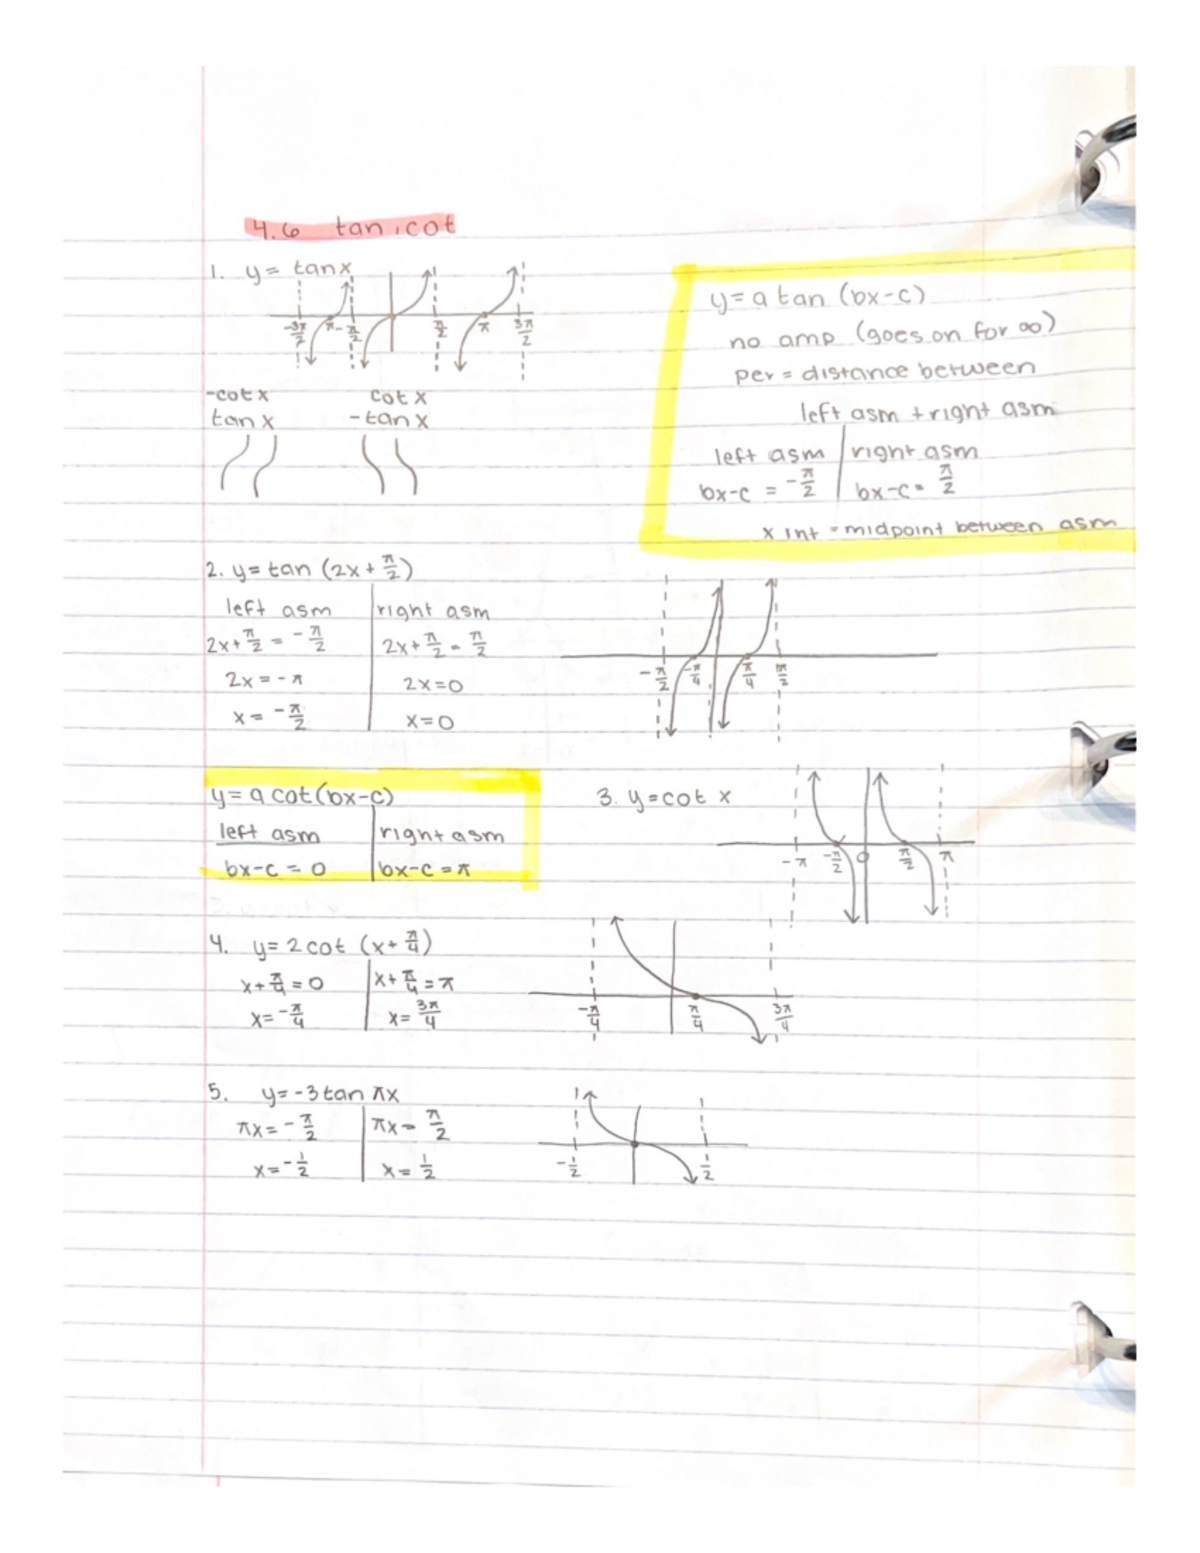 4.6 tan, cot
1. y = tan x
-3π/2 π - π/2 π/2 π 3π/2
-cot x cot x
tan x -tan x
y = a tan (bx-c)
no amp (goes on for ∞)
per = distance between
left asm + right asm
left asm | right asm
bx-c = -π/2 | bx-c = π/2
x int = midpoint between asm
2. y = tan (2x + π/2)
left asm | right asm
2x + π/2 = -π/2 | 2x + π/2 = π/2
2x = -π | 2x = 0
x = -π/2 | x = 0
-π/2 -π/4 π/4 π/2
y = a cot (bx-c)
left asm | right asm
bx-c = 0 | bx-c = π
3. y = cot x
-π -π/2 0 π/2 π
4. y = 2 cot (x + π/4)
x + π/4 = 0 | x + π/4 = π
x = -π/4 | x = 3π/4
-π/4 π/4 3π/4
5. y = -3 tan πx
πx = -π/2 | πx = π/2
x = -1/2 | x = 1/2
-1/2 1/2